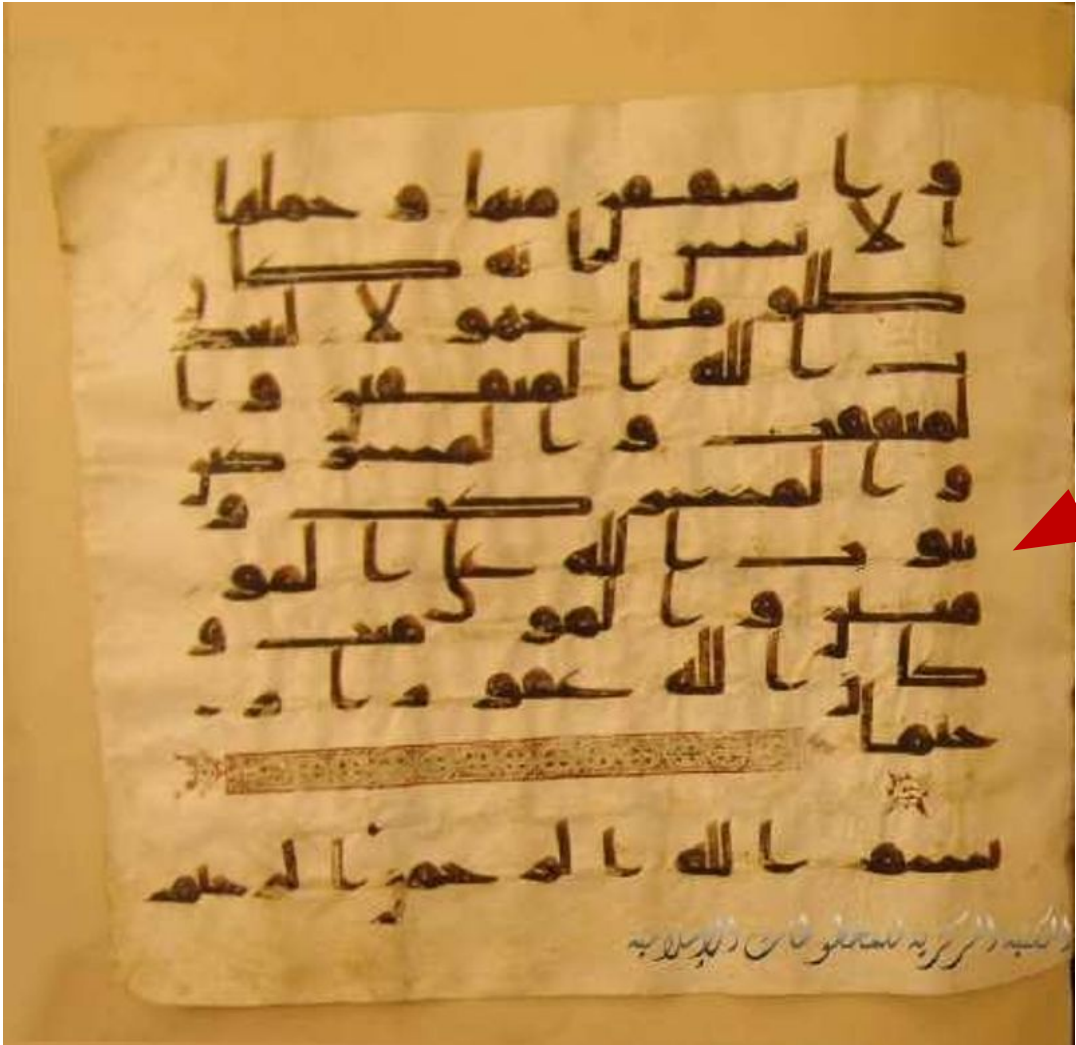 و اشفقن منها و حملها
ا لا نسن ا نه كا
ن ظلو ما جهو لا ليعذ
ب ا لله ا لمنفقين و ا
لمنفقت و ا لمشر كين
و ا لمشر كت و
يتو ب ا لله على ا لمو
منين و ا لمو منت و
كا ن ا لله غفو ر ا ر
حيما
بسم ا لله ا لر حمن ا لر حيم
المكتبة المركزية للمخطوطات الإسلامية